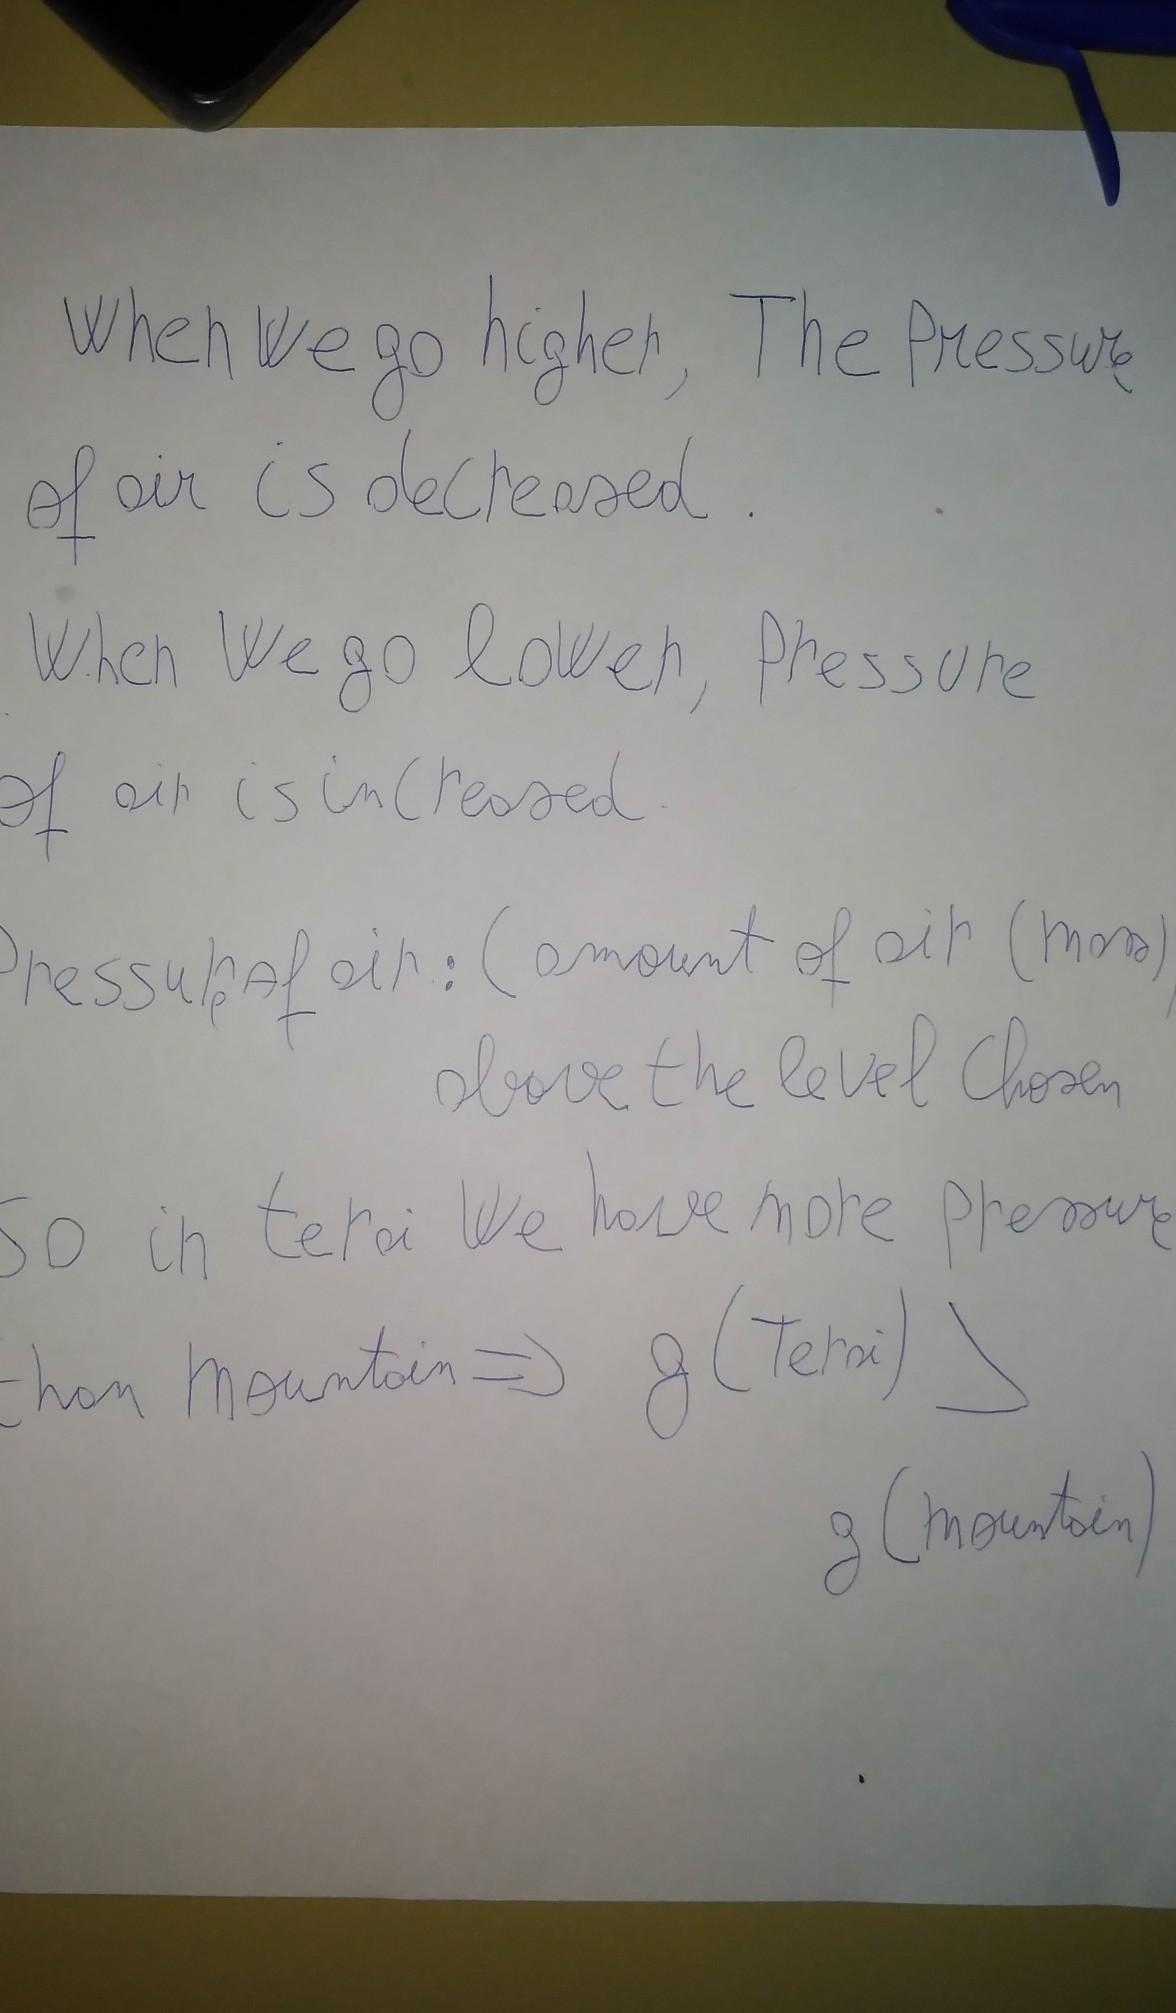 When We go higher, The Pressure
of air is decreased.
When We go lower, Pressure
of air is increased.
Pressure of air: (amount of air (mass)
above the level Chosen
So in terai We have more pressure
than Mountain => g (Terai) >
g (mountain)